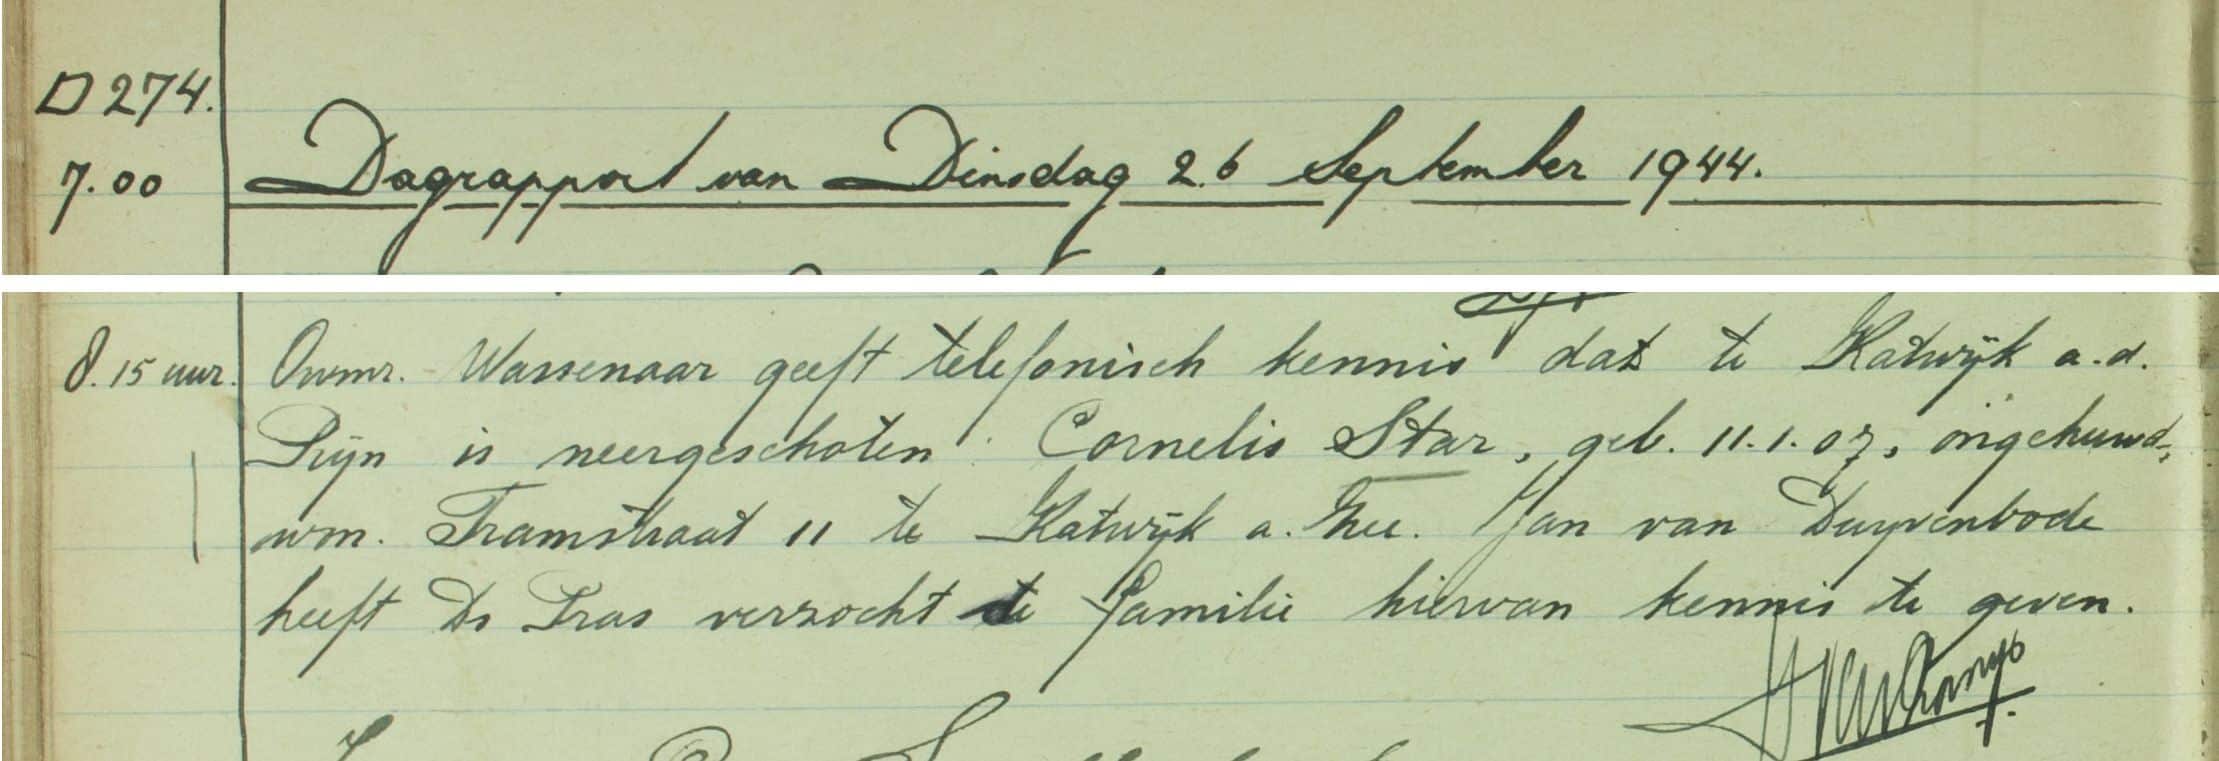 D 274.
7.00 Dagrapport van Dinsdag 26 September 1944.
8.15 uur. Owmr. Wassenaar geeft telefonisch kennis dat te Katwijk a.d.
Rijn is neergeschoten: Cornelis Star, geb. 11.1.07, ongehuwd,
won. Tramstraat 11 te Katwijk a. Zee. Jan van Duyvenbode
heeft Ds Tras verzocht de familie hiervan kennis te geven.